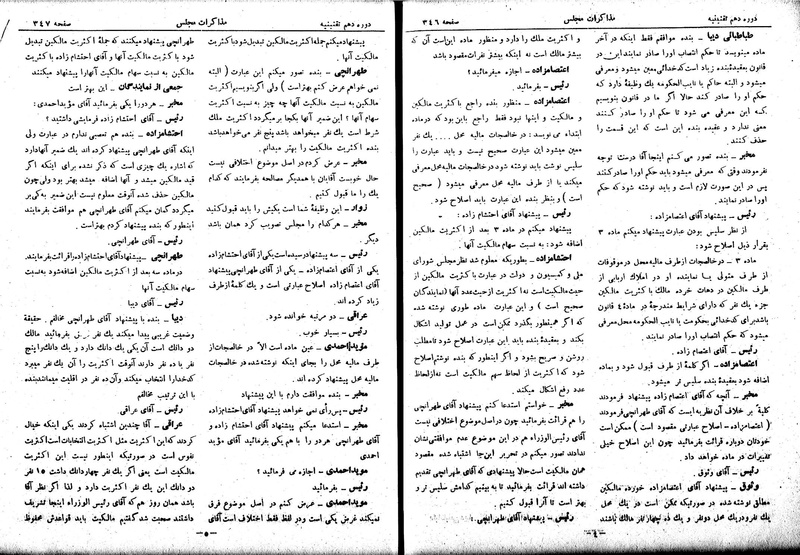 دوره دهم تقنینیه
مذاکرات مجلس
صفحه ۳۴۶
طباطبائی دیبا ـ بنده موافقم فقط اینکه در آخر
ماده مینویسد تا حکم انتصاب اورا صادر نمایند این در
قانون بعقیدهٔ بنده زیاد است کدخدائی معین میشود ومعرفی
میشود و البته حاکم یا نایب‌الحکومه یک وظیفهٔ دارد که
حکم او را صادر کند حالا اگر ما در قانون بنویسیم
که این معرفی می شود تا حکم او را صادر کنند
معنی ندارد و عقیده بنده این است که این قسمت را
حذف کنند.
مخبر ـ بنده تصور می کنم اینجا آقا درست توجه
نفرمودند وقتی که معرفی میشود باید حکم اورا صادر کنند
پس در این صورت لازم است و باید نوشته شود که حکم
اورا صادر نمایند.
رئیس ـ پیشنهاد آقای اعتصام‌زاده:
از نظر سلیس بودن عبارت پیشنهاد میکنم ماده ۳
بقرار ذیل اصلاح شود:
ماده ۳ ـ در خالصجات از طرف مالیه محل در موقوفات
از طرف متولی یا نماینده او در املاک اربابی از
طرف مالکین در دهات خرده مالک با کثریت مالکین
جزء یک نفر که دارای شرایط مندرجهٔ در ماده ٤ قانون
باشد برای کدخدائی بحکومت یا نایب الحکومه محل معرفی
میشود که حکم انتصاب اورا صادر نمایند.
رئیس ـ آقای اعتصام زاده.
اعتصامزاده ـ اگر کلمهٔ از طرف قبول شود و بماده
اضافه شود بعقیدهٔ بنده سلیس تر میشود.
مخبر ـ آنچه که آقای اعتصام زاده پیشنهاد فرمودند
کلیهٔ بر خلاف آن نظریه است که آقای طهرانچی فرمودند
(اعتصامزاده ـ اصلاح عبارتی مقصود است) ممکن است
خودتان دوباره قرائت بفرمائید چون این اصلاح خیلی
تغییرات در ماده خواهد داد.
رئیس ـ آقای وثوق.
وثوق ـ پیشنهاد آقای اعتصامزاده خورده مالکین
مطالبی نوشته شده در صورتیکه ممکن است در یک محل
یک نفر و در یک محل دو نفر و یک ده چهار نفر مالک باشند
و اکثریت ملک را دارد و منظور ماده این است آن که
بیشتر مالک است نه اینکه بیشتر نفرات مقصود باشد
اعتصامزاده ـ اجازه میفرمائید؟
رئیس ـ بفرمائید.
اعتصامزاده ـ منظور بنده راجع باکثریت مالکین
و مالکیت و اینها نبود فقط راجع باین بود که در ماده
ابتداء می نویسد: در خالصجات مالیه محل .... یک نفر
معین میشود این عبارت صحیح نیست و باید عبارت را
سلیس نوشت باید نوشته شود در خالصجات مالیه محل معرفی
میکند یا از طرف مالیه محل معرفی میشود (صحیح
است) و بنظر بنده این عبارت باید اصلاح شود.
رئیس ـ پیشنهاد آقای احتشام زاده:
پیشنهاد میکنم در ماده ۳ بعد از اکثریت مالکین
اضافه شود: به نسبت سهام مالکیت آنها.
احتشامزاده ـ بطوریکه معلوم شد نظر مجلس شورای
ملی و کمیسیون و دولت در عبارت با کثریت مالکین از
حیث مالکیت است نه اکثریت از حیث عدد آنها (نمایندگان
صحیح است) و این عبارت ماده طوری نوشته شده
که اگر همینطور بگذرد ممکن است در محل تولید اشکال
بکند و بعقیدهٔ بنده باید این عبارت اصلاح شود تا مطلب
روشن و صریح بشود و اگر اینطور که بنده نوشتم اصلاح
شود که اکثریت از لحاظ سهم مالکیت است نه از لحاظ
عدد رفع اشکال میکند.
مخبر ـ خواستم استدعا کنم پیشنهاد آقای طهرانچی
را هم قرائت بفرمائید چون در اصل موضوع اختلافی نیست
آقای رئیس الوزراء هم در این موضوع عدم موافقتی نشان
ندادند تصور میکنم در تحریر این جا اشتباه شده مقصود
همان مالکیت است حالا پیشنهادی که آقای طهرانچی تقدیم
داشته اند قرائت بفرمائید تا به بینیم کدامش سلیس تر و
بهتر است تا آنرا قبول کنیم.
رئیس ـ پیشنهاد آقای طهرانچی:
ـ ٤ ـ
دوره دهم تقنینیه
مذاکرات مجلس
صفحه ۳٤۷
پیشنهاد میکنم جمله اکثریت مالکین تبدیل شود با کثریت
مالکیت آنها.
طهرانچی ـ بنده تصور میکنم این عبارت (البته
نمی خواهم عرض کنم بهتر است) ولی اگر بنویسیم اکثریت
مالکین به نسبت مالکیت آنها چه چیز به نسبت
سهام آنها؟ این ضمیر آنها بکجا برمیگردد اکثریت ملک
شرط است یک نفر میخواهد باشد پنج نفر می‌خواهد باشد
بنده اکثریت مالکیت را بهتر میدانم.
مخبر ـ عرض کردم در اصل موضوع اختلافی نیست
حال خوبست آقایان با همدیگر مصالحه بفرمایند که کدام
یک را ما قبول کنیم.
زوار ـ این وظیفهٔ شما است یکیش را باید قبول کنید
مخبر ـ هر کدام را مجلس تصویب کرد همان باشد
دیگر.
رئیس ـ سه پیشنهاد رسیده است یکی از آقای احتشام‌زاده
یکی از آقای اعتصامزاده ـ یکی از آقای طهرانچی پیشنهاد
آقای اعتصام زاده اصلاح عبارتی است و یک کلمه از طرف
زیاد کرده اند.
عراقی ـ دو مرتبه خوانده شود.
رئیس ـ بسیار خوب.
مؤیداحمدی ـ عین ماده است الا در خالصجات از
طرف مالیه محل را بجای اینکه نوشته شده در خالصجات از
مالیه محل پیشنهاد کرده اند.
مخبر ـ بنده موافقت دارم با این پیشنهاد
رئیس ـ پس رأی نمی خواهد پیشنهاد آقای احتشام‌زاده
مخبر ـ استدعا میکنم پیشنهاد آقای احتشام زاده و
آقای طهرانچی هر دو را با هم یکی بفرمائید آقای مؤید
احمدی
مؤیداحمدی ـ اجازه می فرمائید؟
رئیس ـ بفرمائید
مؤیداحمدی ـ عرض کنم در اصل موضوع فرق
نمیکند غرض یکی است ودر لفظ فقط اختلاف است آقای
طهرانچی پیشنهاد میکنند که جملهٔ اکثریت مالکین تبدیل
شود با کثریت مالکیت آنها و آقای احتشام زاده با کثریت
مالکین به نسبت سهام مالکیت آنها را پیشنهاد میکنند
جمعی از نمایندگان ـ این بهتر است
مخبر ـ هر دو را یکی بفرمائید آقای مؤیداحمدی:
رئیس ـ آقای احتشام زاده فرمایشی داشتید؟
احتشامزاده ـ بنده هم تعصبی ندارم در عبارت ولی
اینکه آقای طهرانچی پیشنهاد کرده اند یک ضمیر آنها دارد
که اشاره یک چیزی است که ذکر نشده برای اینکه اگر
قید مالکین میشد و آنها اضافه میشد بهتر بود ولی چون
مالکین حذف شده آنوقت معلوم نیست این ضمیر به کی بر
میگردد گمان میکنم آقای طهرانچی هم موافقت بفرمایند
اینطور که بنده پیشنهاد کردم بهتر است.
رئیس ـ آقای طهرانچی.
طهرانچی ـ پیشنهاد آقای احتشامزاده را قرائت بفرمایند.
در ماده سه بعد از اکثریت مالکین اضافه شود به نسبت
سهام مالکیت آنها
رئیس ـ آقای دیبا
دیبا ـ بنده با پیشنهاد آقای طهرانچی مخالفم. حقیقة
وضعیت غریبی پیدا میکند یک نفر بفرمائید مالک
دو دانک است آن یکی یک دانک دارد و یک دانک را پنج
نفر یا ده نفر دارند آنوقت اکثریت را آن یک نفر میبرد
کدخدا را انتخاب میکند وآن ده نفر در اقلیت میمانند بنده
با این ترتیب مخالفم
رئیس ـ آقای عراقی.
عراقی ـ آقا چندین اشتباه کردند یکی اینکه خیال
کردند که این اکثریت مثل اکثریت انتخابات است اکثریت
نفوس است در صورتیکه اینطور نیست این اکثریت
مالکیت است یعنی اگر یک نفر چهار دانک داشت ۱٥ نفر
دو دانک این یک نفر اکثریت دارد و لذا اگر نظر آقا
باشد همان روز هم که آقای رئیس الوزراء اینجا تشریف
داشتند صحبت شد گفتیم مالکیت باید قواعدش محفوظ
ـ ٥ ـ